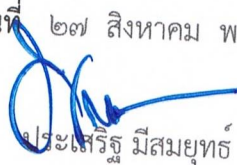 ที่ ๒๗ สิงหาคม พ
ประเสริฐ มีสมยุทธ์